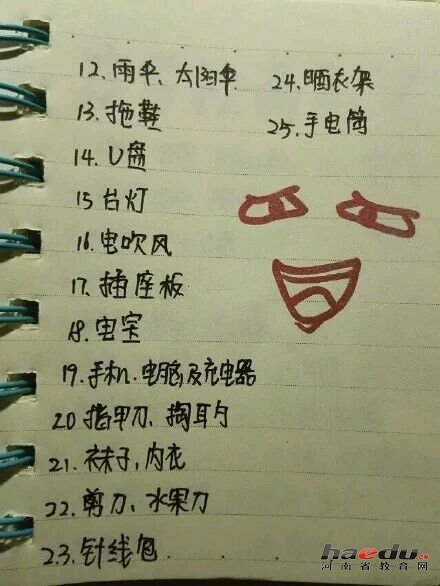 12、雨伞、太阳伞
13、拖鞋
14、U盘
15 台灯
16、电吹风
17、插座板
18、电宝
19、手机、电脑及充电器
20 指甲刀、掏耳勺
21、袜子，内衣
22、剪刀、水果刀
23、针线包
24、晒衣架
25、手电筒
haedu.cn
河南省教育网